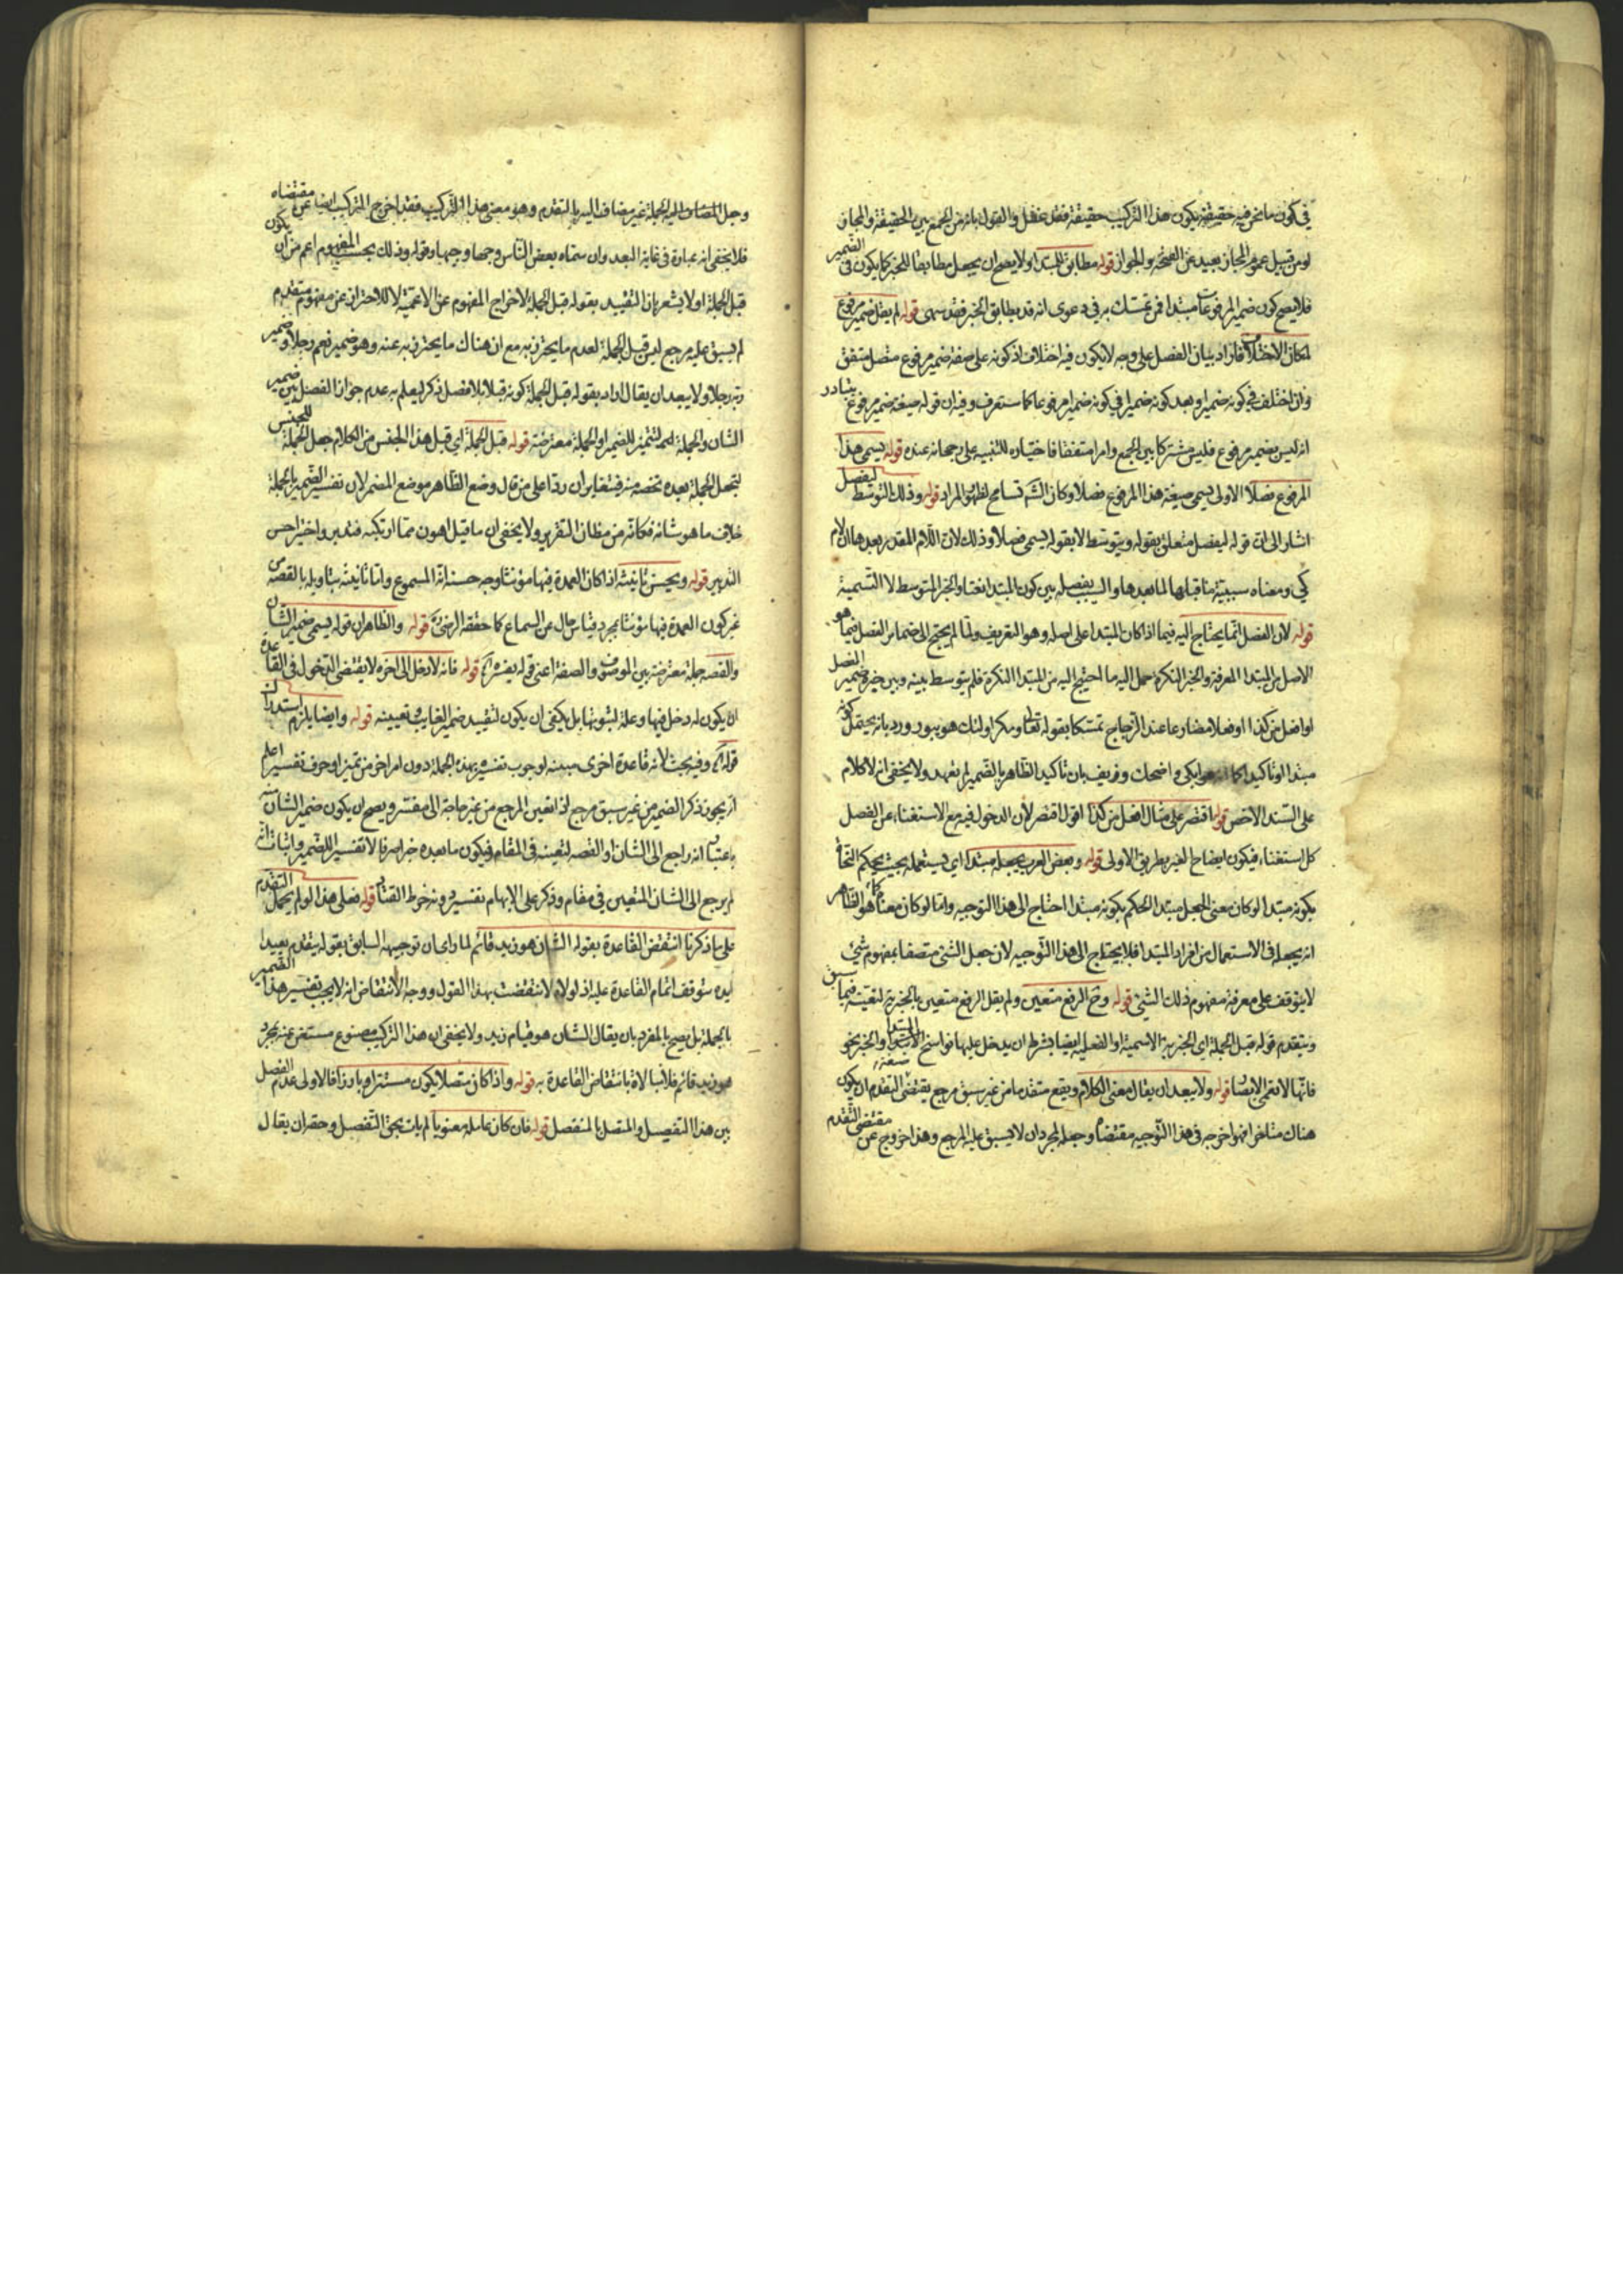 في كون ما نحن فيه حقيقة يكون هذا التركيب حقيقة فقد غفل والقول بانه من الجمع بين الحقيقة والمجاز
او من قبيل عموم المجاز بعيد عن الصحة والجواز قوله مطابق للمبتدا ولا يصح ان يجعل مطابقا للخبر كما يكون في الضمير
فلا يصح كون ضمير المرفوعات مبتدا فمن تمسك به في دعوى انه قد يطابق الخبر فقد سهى قوله لم يقل ضمير مرفوع
لمكان الاختلاف فاراد بيان الفصل على وجه لا يكون فيه اختلاف اذ كونه على صيغة ضمير مرفوع متصل متفق
وان اختلف في كونه ضميرا وبعد كونه ضميرا في كونه ضميرا مرفوعا كما ستعرف وفيه ان قوله صيغة ضمير مرفوع يتبادر
انه ليس بضمير مرفوع فليس مشتركا بين الجمع وامرا متفقا فاختياره للتنبيه على رجحانه عنده قوله يسمى هذا
المرفوع فصلا الاولى يسمى صيغة هذا المرفوع فصلا وكان الش تسامح لظهور المراد قوله وذلك التوسط ليفصل
اشار الى ان قوله ليفصل متعلق بقوله ويتوسط لا بقوله يسمى فصلا وذلك لان اللام المقدر بعدها ان لام
كي ومعناه سببية ما قبلها لما بعدها والسبب يفصل بين كون المبتدا نعتا والخبر المتوسط لا التسمية
قوله لان الفصل انما يحتاج اليه فيما اذا كان المبتدا على اصله وهو التعريف ولما لم يحتج الى ضمير الفصل فيما هو
الاصل من المبتدا المعرفة والخبر النكرة حمل اليه ما احتيج اليه من المبتدا النكرة فلم يتوسط بينه وبين خبره ضمير الفصل
او افعل من كذا او فعلا مضارعا عند الزجاج تمسكا بقوله تعالى ومكر اولئك هو يبور ورد بانه يحتمل كونه
مبتدا او تأكيدا كما هو ابكى واضحك وفريف بان تأكيد الظاهر بالضمير لم يعهد ولا يخفى انه لا كلام
على السند الاخص قوله اقتصر على مثال افعل من كذا اقول اقتصر لان الدخول فيه مع الاستغناء عن الفصل
كل استغناء فيكون ايضاح الغير بطريق الاولى قوله وبعض العرب يجعله مبتدا اي يستعمله بحيث يحكم النحاة
بكونه مبتدا لو كان معنى الجعل مبتدا الحكم بكونه مبتدا احتاج الى هذا التوجيه واما لو كان معناه كما هو الظاهر
انه يجعله في الاستعمال من افراد المبتدا فلا يحتاج الى هذا التوجيه لان جعل الشئ متصفا بمفهوم شئ
لا يتوقف على معرفة مفهوم ذلك الشئ قوله وح الرفع متعين ولم يقل الرفع متعين بالخبرية لتعينه فيما سبق
ويتقدم قوله قبل الجملة اي الخبرية الاسمية او الفعلية ايضا بشرط ان يدخل عليها نواسخ الابتداء المبتدا والخبر نحو
فانها لا تعمى الابصار قوله ولا يبعد ان يقال معنى الكلام ويقع متقدما من غير سبق مرجع يقتضى التقدم ان يكون
هناك متاخرا فهو اخرجه في هذا التوجيه مقتضاه وجعله لمجرد ان لا يسبق عليه المرجع وهذا خروج عن مقتضى التقدم
وجعل المضاف اليه الجملة غير مضاف اليه بالتقدم وهو معنى هذا التركيب فقد اخرج التركيب ايضا عن مقتضاه
فلا يخفى انه عبارة في غاية البعد وان سماه بعض الناس وجها وجيها وقوله وذلك بحسب المفهوم اعم من ان يكون
قبل الجملة او لا يشعر بان التقييد بقوله قبل الجملة لاخراج المفهوم عن الاعمية لا للاحتراز عن مفهوم متقدم
لم يسبق عليه مرجع ليس قبل الجملة لعدم ما يحترز به مع ان هناك ما يحترز به عنه وهو ضمير نعم رجلا وضمير
ربه رجلا ولا يبعد ان يقال اراد بقوله قبل الجملة كونه قبلا بلا فصل ذكر ليعلم به عدم جواز الفصل بين ضمير
الشان والجملة قوله قبل الجملة اي قبل هذا الجنس من الكلام جعل الجملة للجنس
خلاف ما هو شانه فكانه من مظان التقرير ولا يخفى ان ما قيل اهون مما ارتكبه فتدبر واختر احسن
التدبير قوله ويحسن تانيثه اذا كان العمدة فيها مؤنثا وجه حسنه انه المسموع واما تانيثه بتاويله بالقصة من
غير كون العمدة فيها مؤنثا مجرد قياس خال عن السماع كما حققه الرضي قوله والظاهر ان قوله يسمى ضمير الشان
والقصة جملة معترضة بين الموصوف والصفة اعنى قوله يفسره قوله فانه لا دخل الى اخره لا يقتضى الدخول في القاعدة
ان يكون له دخل فيها وعلة لثبوتها بل يكفى ان يكون لتقييد ضمير الغايب وتعيينه قوله وايضا يلزم استدراك
قوله وفيه بحث لانه قاعدة اخرى مبينه لوجوب تفسيره بهذه الجملة دون امر اخر من تميز او حرف تفسير اعلم
انه يجوز ذكر الضمير من غير سبق مرجع اذا تعين المرجع من غير حاجة الى مفسر ويصح ان يكون ضمير الشان منه
باعتبار انه راجع الى الشان او القصة لتعينه في المقام فيكون ما بعده خبرا صرفا لا تفسيرا للضمير واثبات انه
لم يرجع الى الشان المتعين في مقام وذكر على الابهام تفسيره دونه خرط القتاد قوله فعلى هذا لو لم يحمل التقدم
على ما ذكرنا انتقض القاعدة بقوله الشان هو زيد قائم لما راى ان توجيهه السابق بقوله يتقدم بعيدا
ايده بتوقف اتمام القاعدة عليه اذ لولاه لانتقضت بهذا القول ووجه الانتقاض انه لا يجب تفسير هذا الضمير
بالجملة بل يصح بالمفرد بان يقال الشان هو قيام زيد ولا يخفى ان هذا التركيب مصنوع مستغن عنه بمجرد
هو زيد قائم فلا مبالاة بانتقاض القاعدة به قوله واذا كان متصلا يكون مستترا وبارزا فالاولى عدم الفصل
بين هذا التفصيل والمتصل بالمنفصل قوله فان كان عامله معنويا لم يات بحق التفصيل وحقه ان يقال